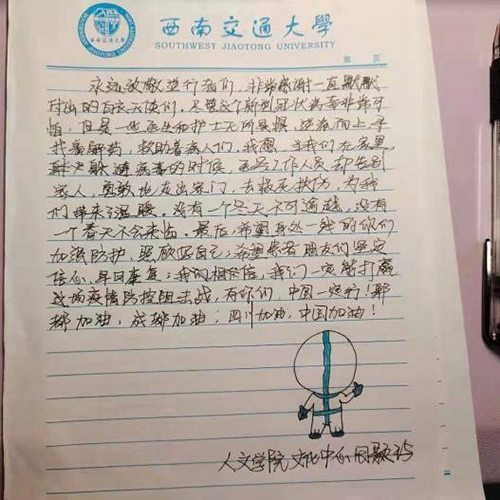 西南交通大學
SOUTHWEST JIAOTONG UNIVERSITY
第 页
永远致敬逆行者们，非常感谢一直默默
付出的白衣天使们，尽管这个新型冠状病毒非常可
怕，但是一些医生和护士无所畏惧，逆流而上，寻
找着解药，救助着病人们，我想，当我们在家里
躲避病毒的时候，医务工作人员却告别
家人，勇敢地走出家门，去救死扶伤，为我
们带来了温暖。没有一个冬天不可逾越，没有
一个春天不会来临。最后，希望在这一线的你们
加强防护，照顾好自己；希望患者朋友们坚定
信心，早日康复；我们相信，我们一定能打赢
这场疫情防控阻击战，有你们，中国一定行！
加油，成都加油；四川加油，中国加油！
人文学院 文化中心